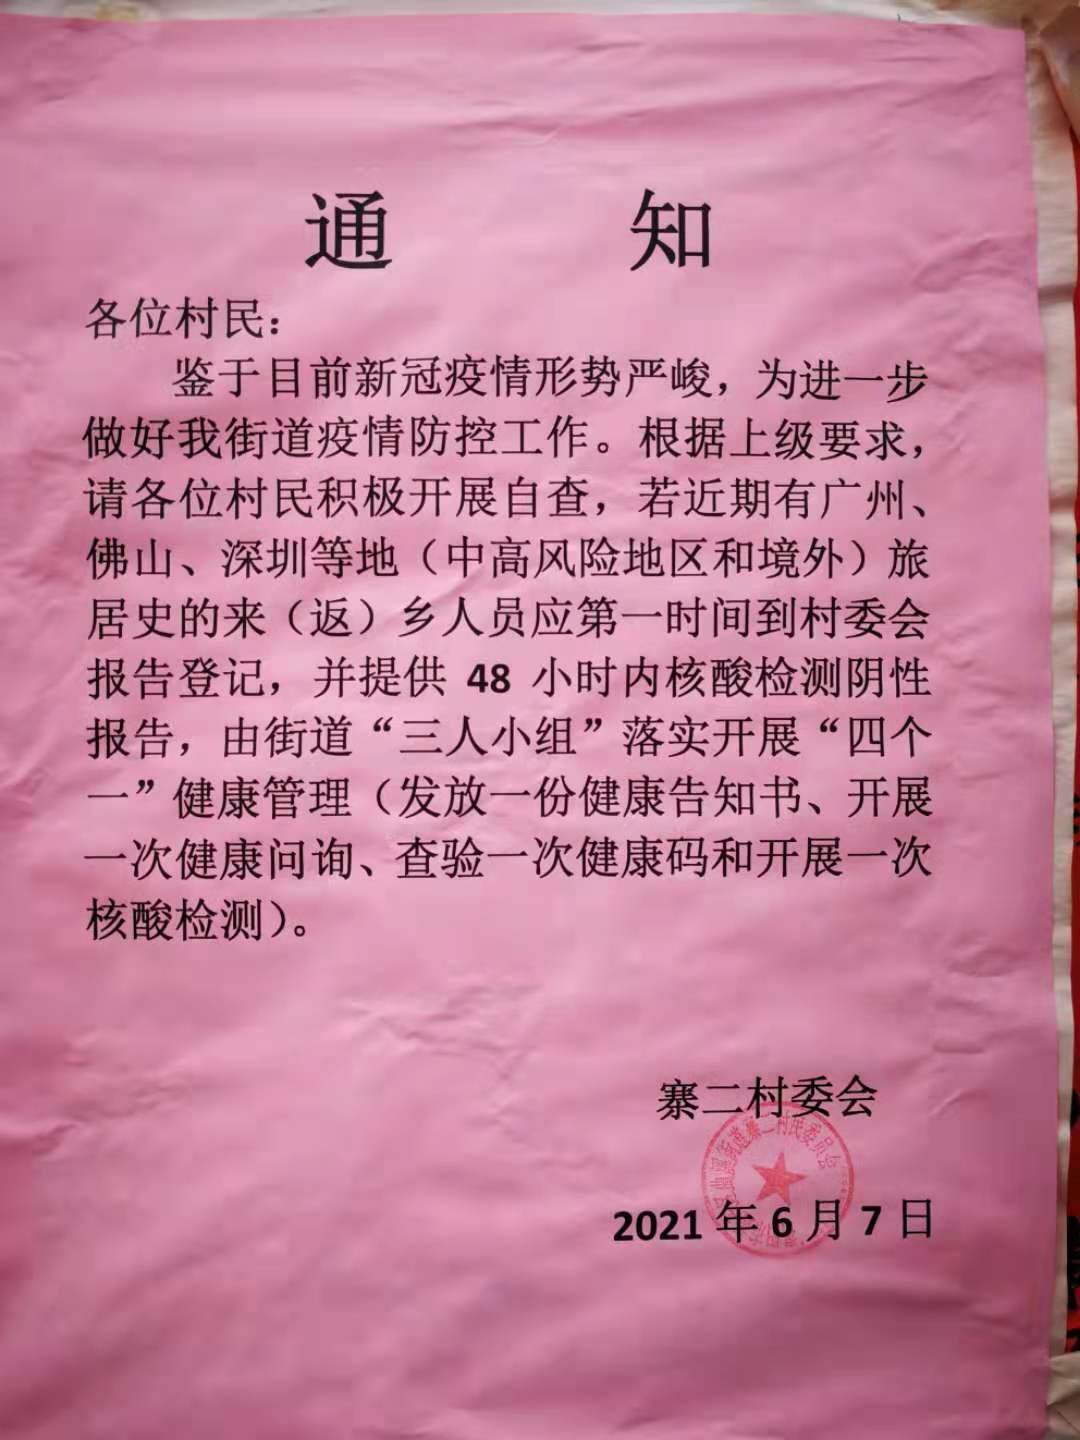 通 知
各位村民：
鉴于目前新冠疫情形势严峻，为进一步
做好我街道疫情防控工作。根据上级要求，
请各位村民积极开展自查，若近期有广州、
佛山、深圳等地（中高风险地区和境外）旅
居史的来（返）乡人员应第一时间到村委会
报告登记，并提供 48 小时内核酸检测阴性
报告，由街道“三人小组”落实开展“四个
一”健康管理（发放一份健康告知书、开展
一次健康问询、查验一次健康码和开展一次
核酸检测）。
寨二村委会
街道寨二村民委员会
2021 年 6 月 7 日